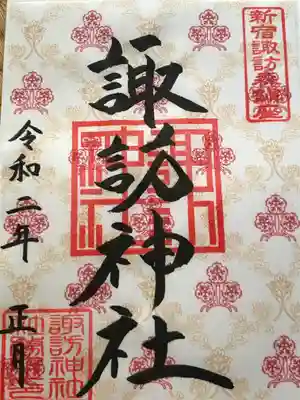 新宿諏訪森鎮座
諏訪神社
令和二年 正月
諏訪神